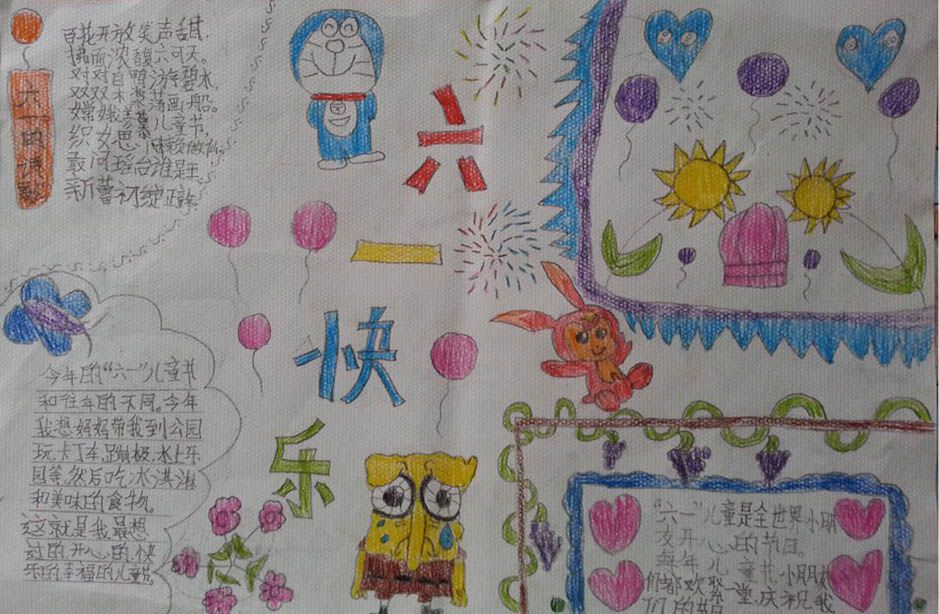 六一的诗歌
百花开放笑声甜,
拂面浓馥六可天。
对对白鸭游碧水,
双双木桨荡画船。
嫦娥羡慕儿童节,
织女思凡
敢问瑶台谁是王,
新蕾初绽正
六
一
快
乐
今年的“六一”儿童节
和往年的不同。今年
我想妈妈带我到公园
玩卡丁车,蹦极,水上乐
园等,然后吃冰淇淋
和美味的食物。
这就是我最想
过的开心的快
乐的幸福的儿童节
“六一”儿童是全世界小朋
友开心的节日。
每年儿童节,小朋友
们都欢聚一堂,庆祝我
们的节日